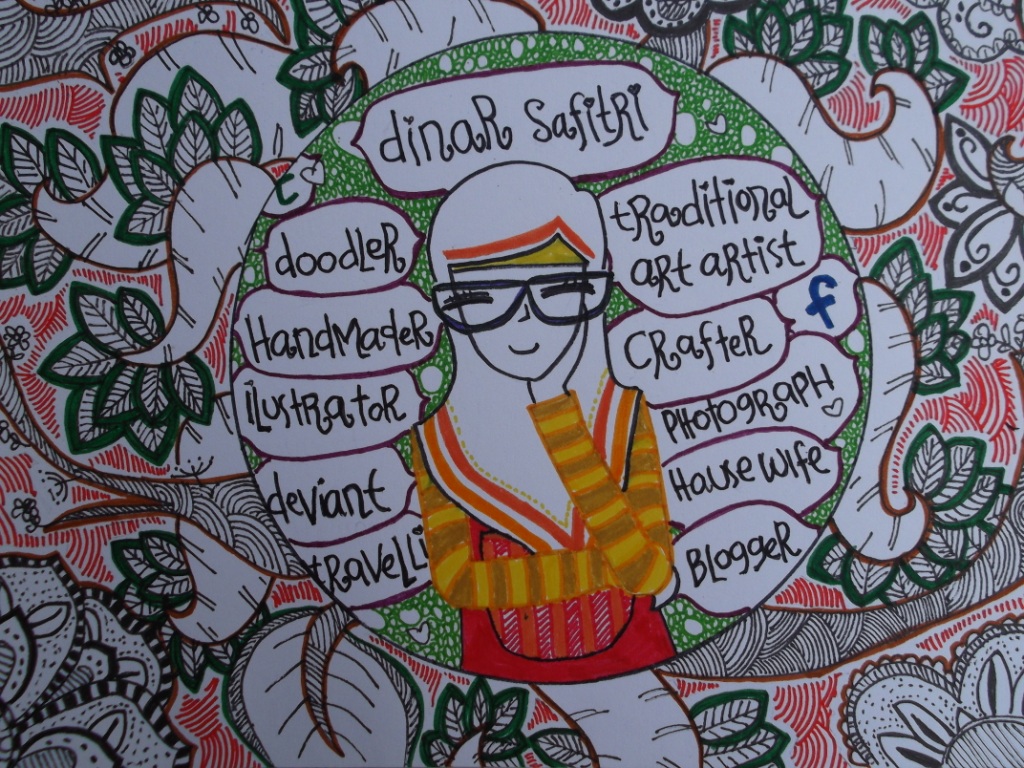 dinar safitri
t
doodler
Handmader
ilustrator
deviant
travelli
traditional
art artist
f
crafter
photograph
Hause wife
Blogger